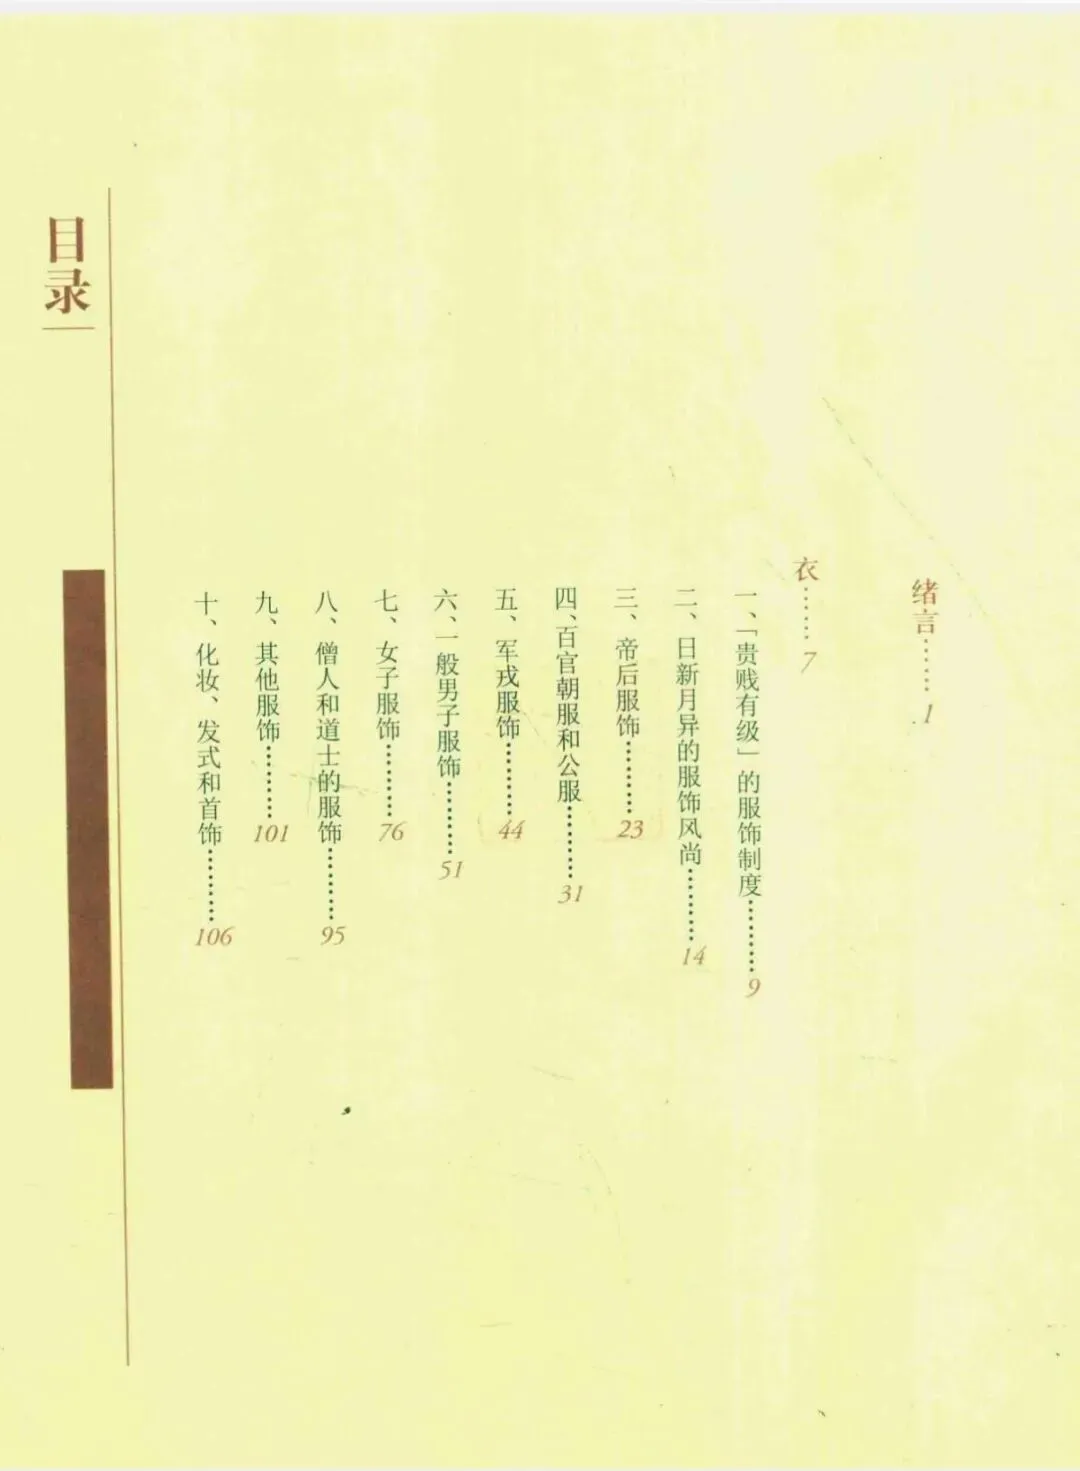 目录
绪言……1
衣……7
一、「贵贱有级」的服饰制度………9
二、日新月异的服饰风尚………14
三、帝后服饰………23
四、百官朝服和公服………31
五、军戎服饰………44
六、一般男子服饰………51
七、女子服饰………76
八、僧人和道士的服饰………95
九、其他服饰………101
十、化妆、发式和首饰………106